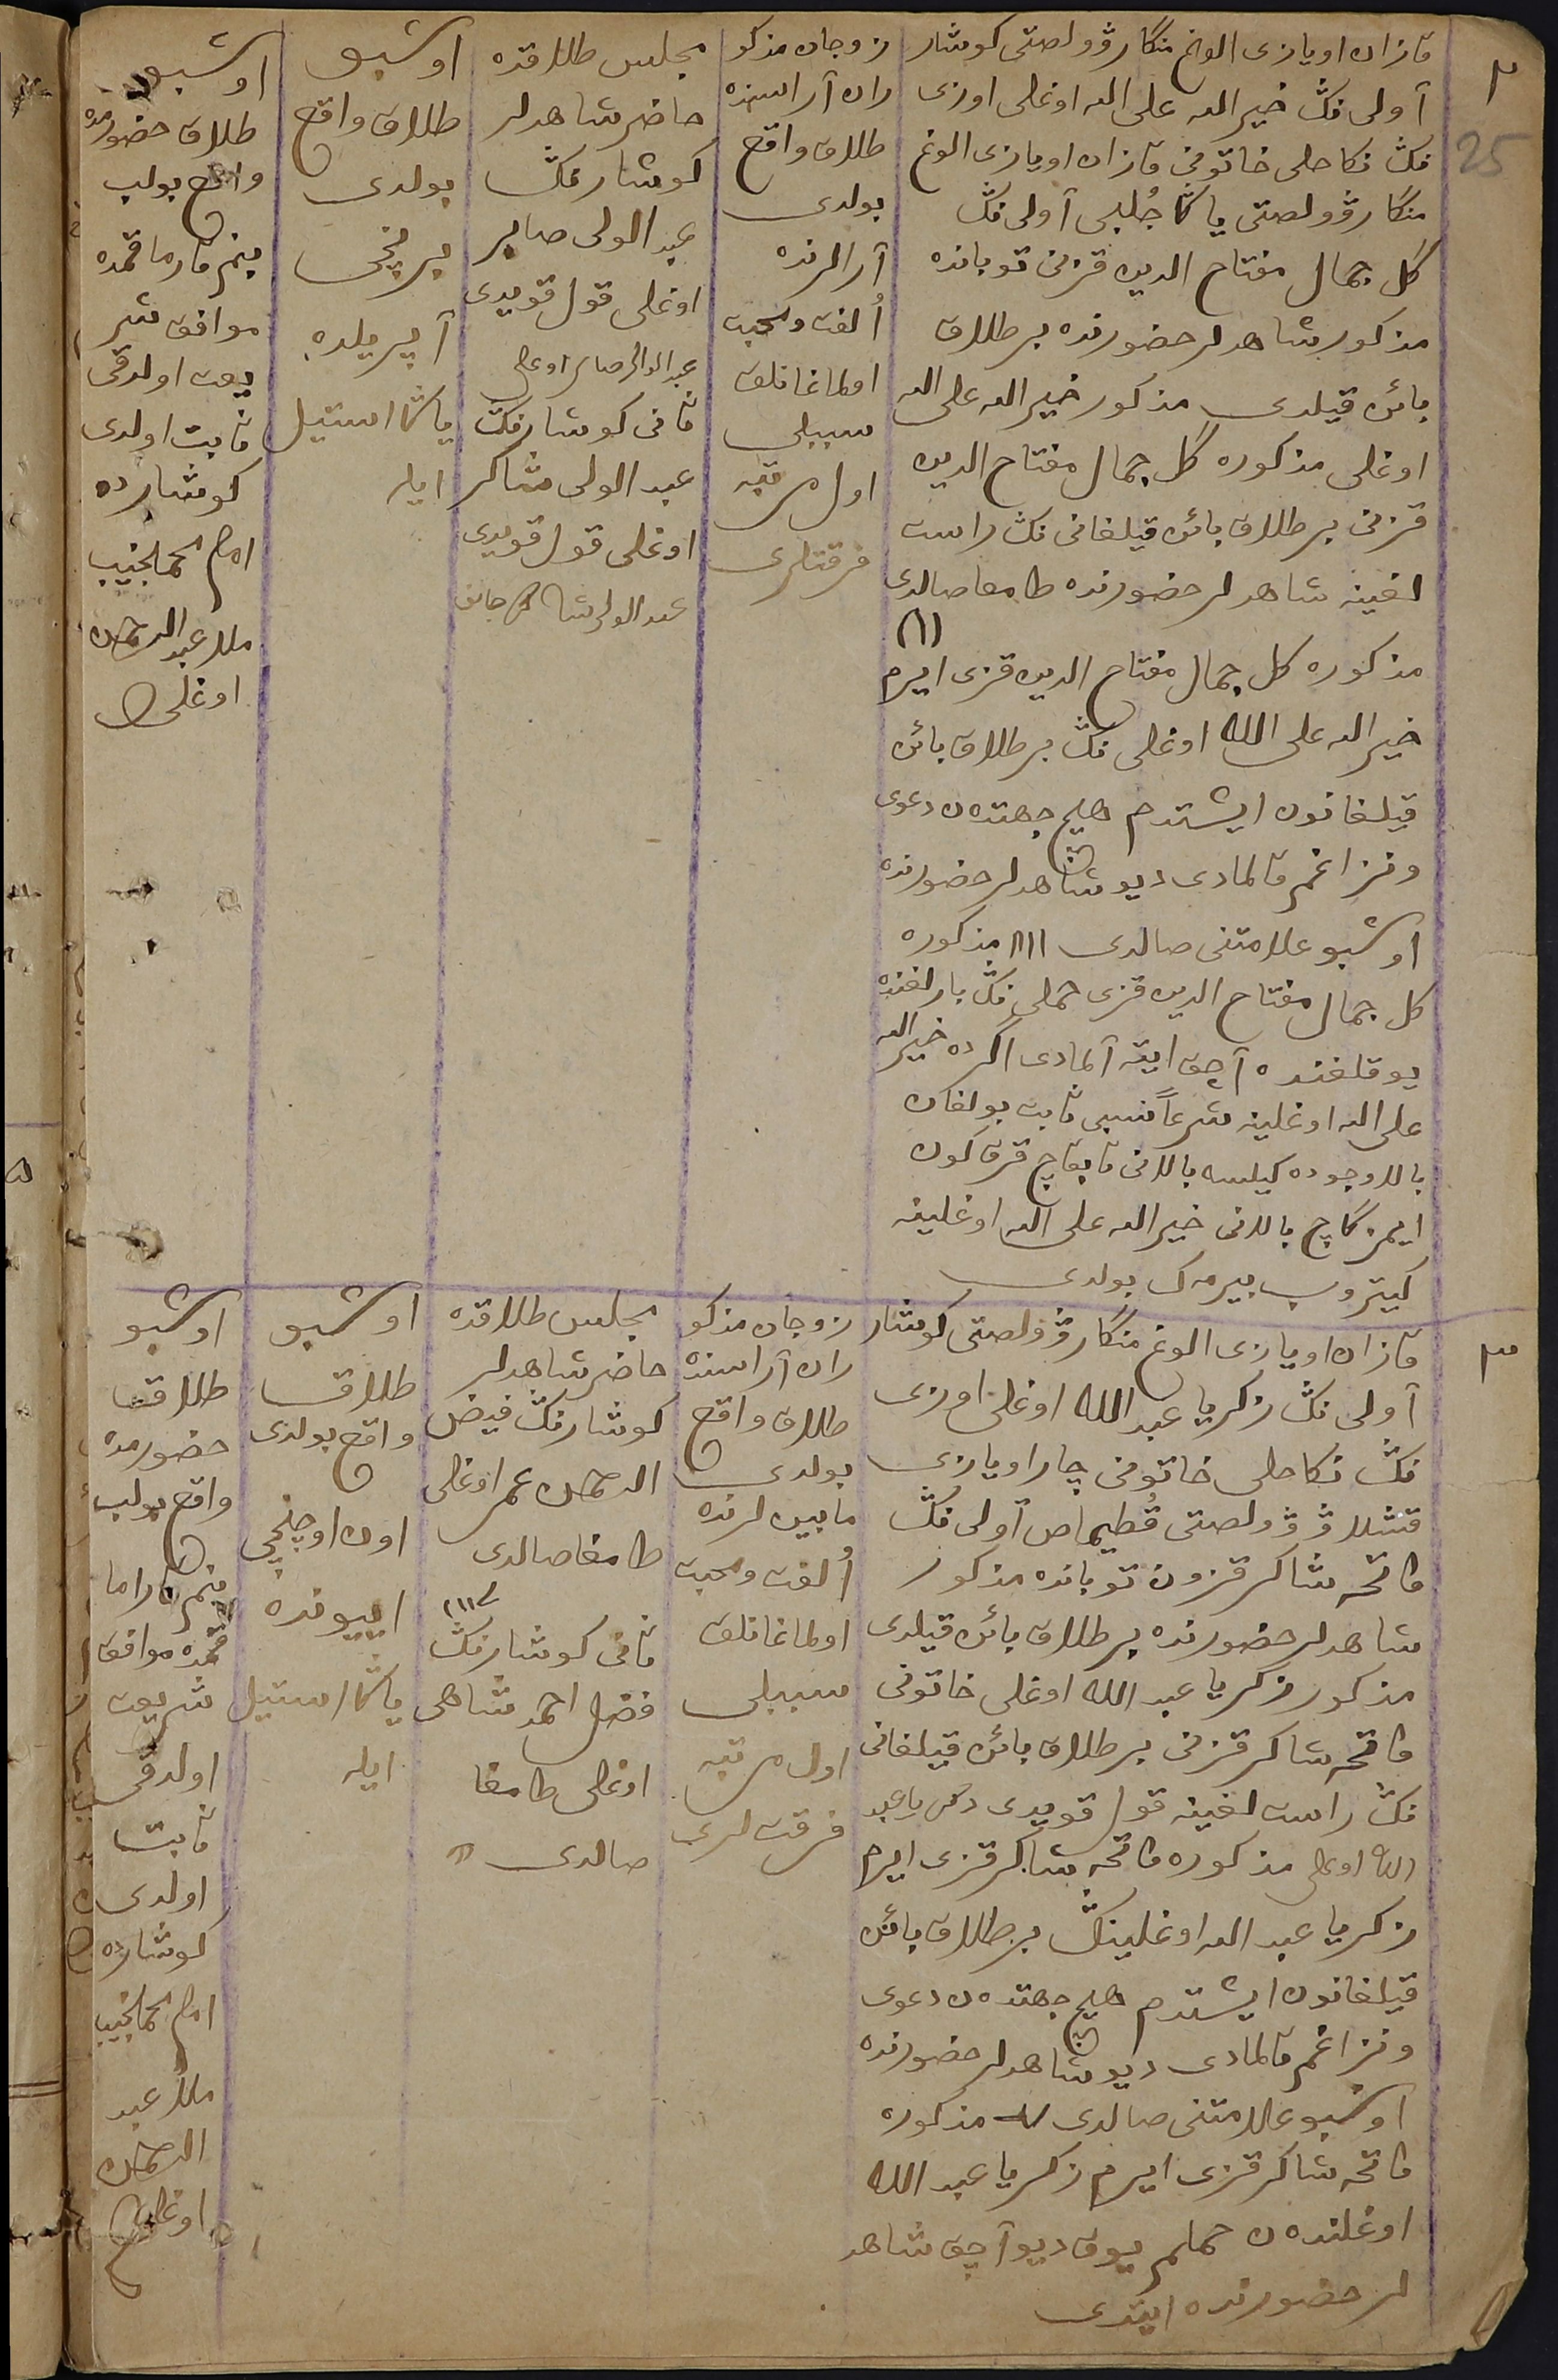 ٢
25
قازان اويازى الوغ منكار ۋولصتى كوشار
آولى نڭ خير الله على الله اوغلى اوزى
نڭ نكاحلى خاتونى قازان اويازى الوغ
منكار ۋولصتى ياڭا جُلبى آولى نڭ
كل جمال مفتاح الدين قزنى توبانده
مذكور شاهدلر حضورنده بر طلاق
بائن قيلدى مذكور خير الله على الله
اوغلى مذكوره كل جمال مفتاح الدين
قزنى بر طلاق بائن قيلغانى نڭ راست
لغينه شاهدلر حضورنده طامغا صالدى
مذكوره كل جمال مفتاح الدين قزى ايرم
خير الله على الله اوغلى نڭ بر طلاق بائن
قيلغانون ايشتدم هيچ جهتدەن دعوى
ونزاغم قالمادى ديو شاهدلر حضورنده
اوشبو علامتنى صالدى ١٨١١ مذكوره
كل جمال مفتاح الدين قزى حملى نڭ بارلغنده
يوقلغنده آچق ايته آلمادى اكرده خير الله
على الله اوغلينه شرعاً نسبى ثابت بولغان
بالا وجوده كيلسه بالانى تابقاچ قرق كون
ايمزكاچ بالانى خير الله على الله اوغلينه
كيتروپ بيرمەك بولدى
زوجان مذكو
ران آراسنده
طلاق واقع
بولدى
آرالرنده
اُلفت ومحبت
اولماغانلق
سببلى
اول مرتبه
فرقتلرى
مجلس طلاقده
حاضر شاهدلر
كوشارنڭ
عبد الولى صابر
اوغلى قول قويدى
ثانى كوشارنڭ
عبد الولى شاكر
اوغلى قول قويدى
اوشبو
طلاق واقع
بولدى
برنچى
آپريلده
ياڭا استيل
ايله
اوشبو
طلاق حضورمده
واقع بولب
ينم قارماقمده
موافق شر
يعت اولدقى
ثابت اولدى
كوشارده
امام محمد نجيب
ملا عبد الرحمن
اوغلى
٣
قازان اويازى الوغ منكار ۋولصتى كوشار
آولى نڭ زكريا عبد الله اوغلى اوزى
نڭ نكاحلى خاتونى چار اويازى
قشلاۋ ۋولصتى قُطيماص آولى نڭ
فاتحه شاكر قزون توبانده مذكور
شاهدلر حضورنده بر طلاق بائن قيلدى
مذكور زكريا عبد الله اوغلى خاتونى
فاتحه شاكر قزنى بر طلاق بائن قيلغانى
نڭ راست لغينه قول قويدى زكريا عبد
الله اوغلى مذكوره فاتحه شاكر قزى ايرم
زكريا عبد الله اوغلينڭ بر طلاق بائن
قيلغانون ايشتدم هيچ جهتدەن دعوى
ونزاغم قالمادى ديو شاهدلر حضورنده
اوشبو علامتنى صالدى مذكوره
فاتحه شاكر قزى ايرم زكريا عبد الله
اوغلندەن حملم يوق ديو آچق شاهد
لر حضورنده ايتدى
زوجان مذكو
ران آراسنده
طلاق واقع
بولدى
مابينلرنده
اُلفت ومحبت
اولماغانلق
سببلى
اول مرتبه
فرقت لرى
مجلس طلاقده
حاضر شاهدلر
كوشارنڭ فيض
الرحمن عمر اوغلى
طامغا صالدى
ثانى كوشارنڭ
فضل احمد شاهى
اوغلى طامغا
صالدى
اوشبو
طلاق
واقع بولدى
اون اوچنچى
اييونده
ياڭا استيل
ايله
اوشبو
طلاق
حضورمده
واقع بولب
ينم قاراما
قمده موافق
شريعت
اولدقى
ثابت
اولدى
كوشارده
امام محمد نجيب
ملا عبد
الرحمن
اوغلى